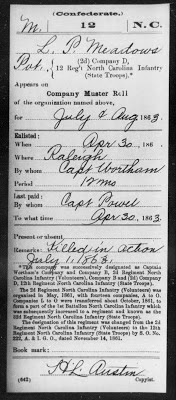 (Confederate.)
M. 12 N.C.
L. P. Meadows
Pvt., (2d) Company D,
12 Reg't North Carolina Infantry
(State Troops).*
Appears on
Company Muster Roll
of the organization named above,
for July & Aug 1863.
Enlisted:
When Apr 30, 186
Where Raleigh
By whom Capt Wortham
Period 12 mo
Last paid:
By whom Capt Powel
To what time Apr 30, 1863.
Present or absent
Remarks: Killed in action
July 1, 1863.
*This company was successively designated as Captain
Wortham's Company and Company E, 2d Regiment North
Carolina Infantry (Volunteers), Company B and (2d) Company
D, 12th Regiment North Carolina Infantry (State Troops).
The 2d Regiment North Carolina Infantry (Volunteers) was
organized in May, 1861, with fourteen companies, A to O.
Companies L to O were transferred about October, 1861, to
form a part of the 1st Battalion North Carolina Infantry which
was subsequently increased to a regiment and known as the
32d Regiment North Carolina Infantry (State Troops).
The designation of this regiment was changed from the 2d
Regiment North Carolina Infantry (Volunteers) to the 12th
Regiment North Carolina Infantry (State Troops) by S. O. No.
222, A. & I. G. O., dated November 14, 1861.
Book mark:
H L Austin
(642) Copyist.